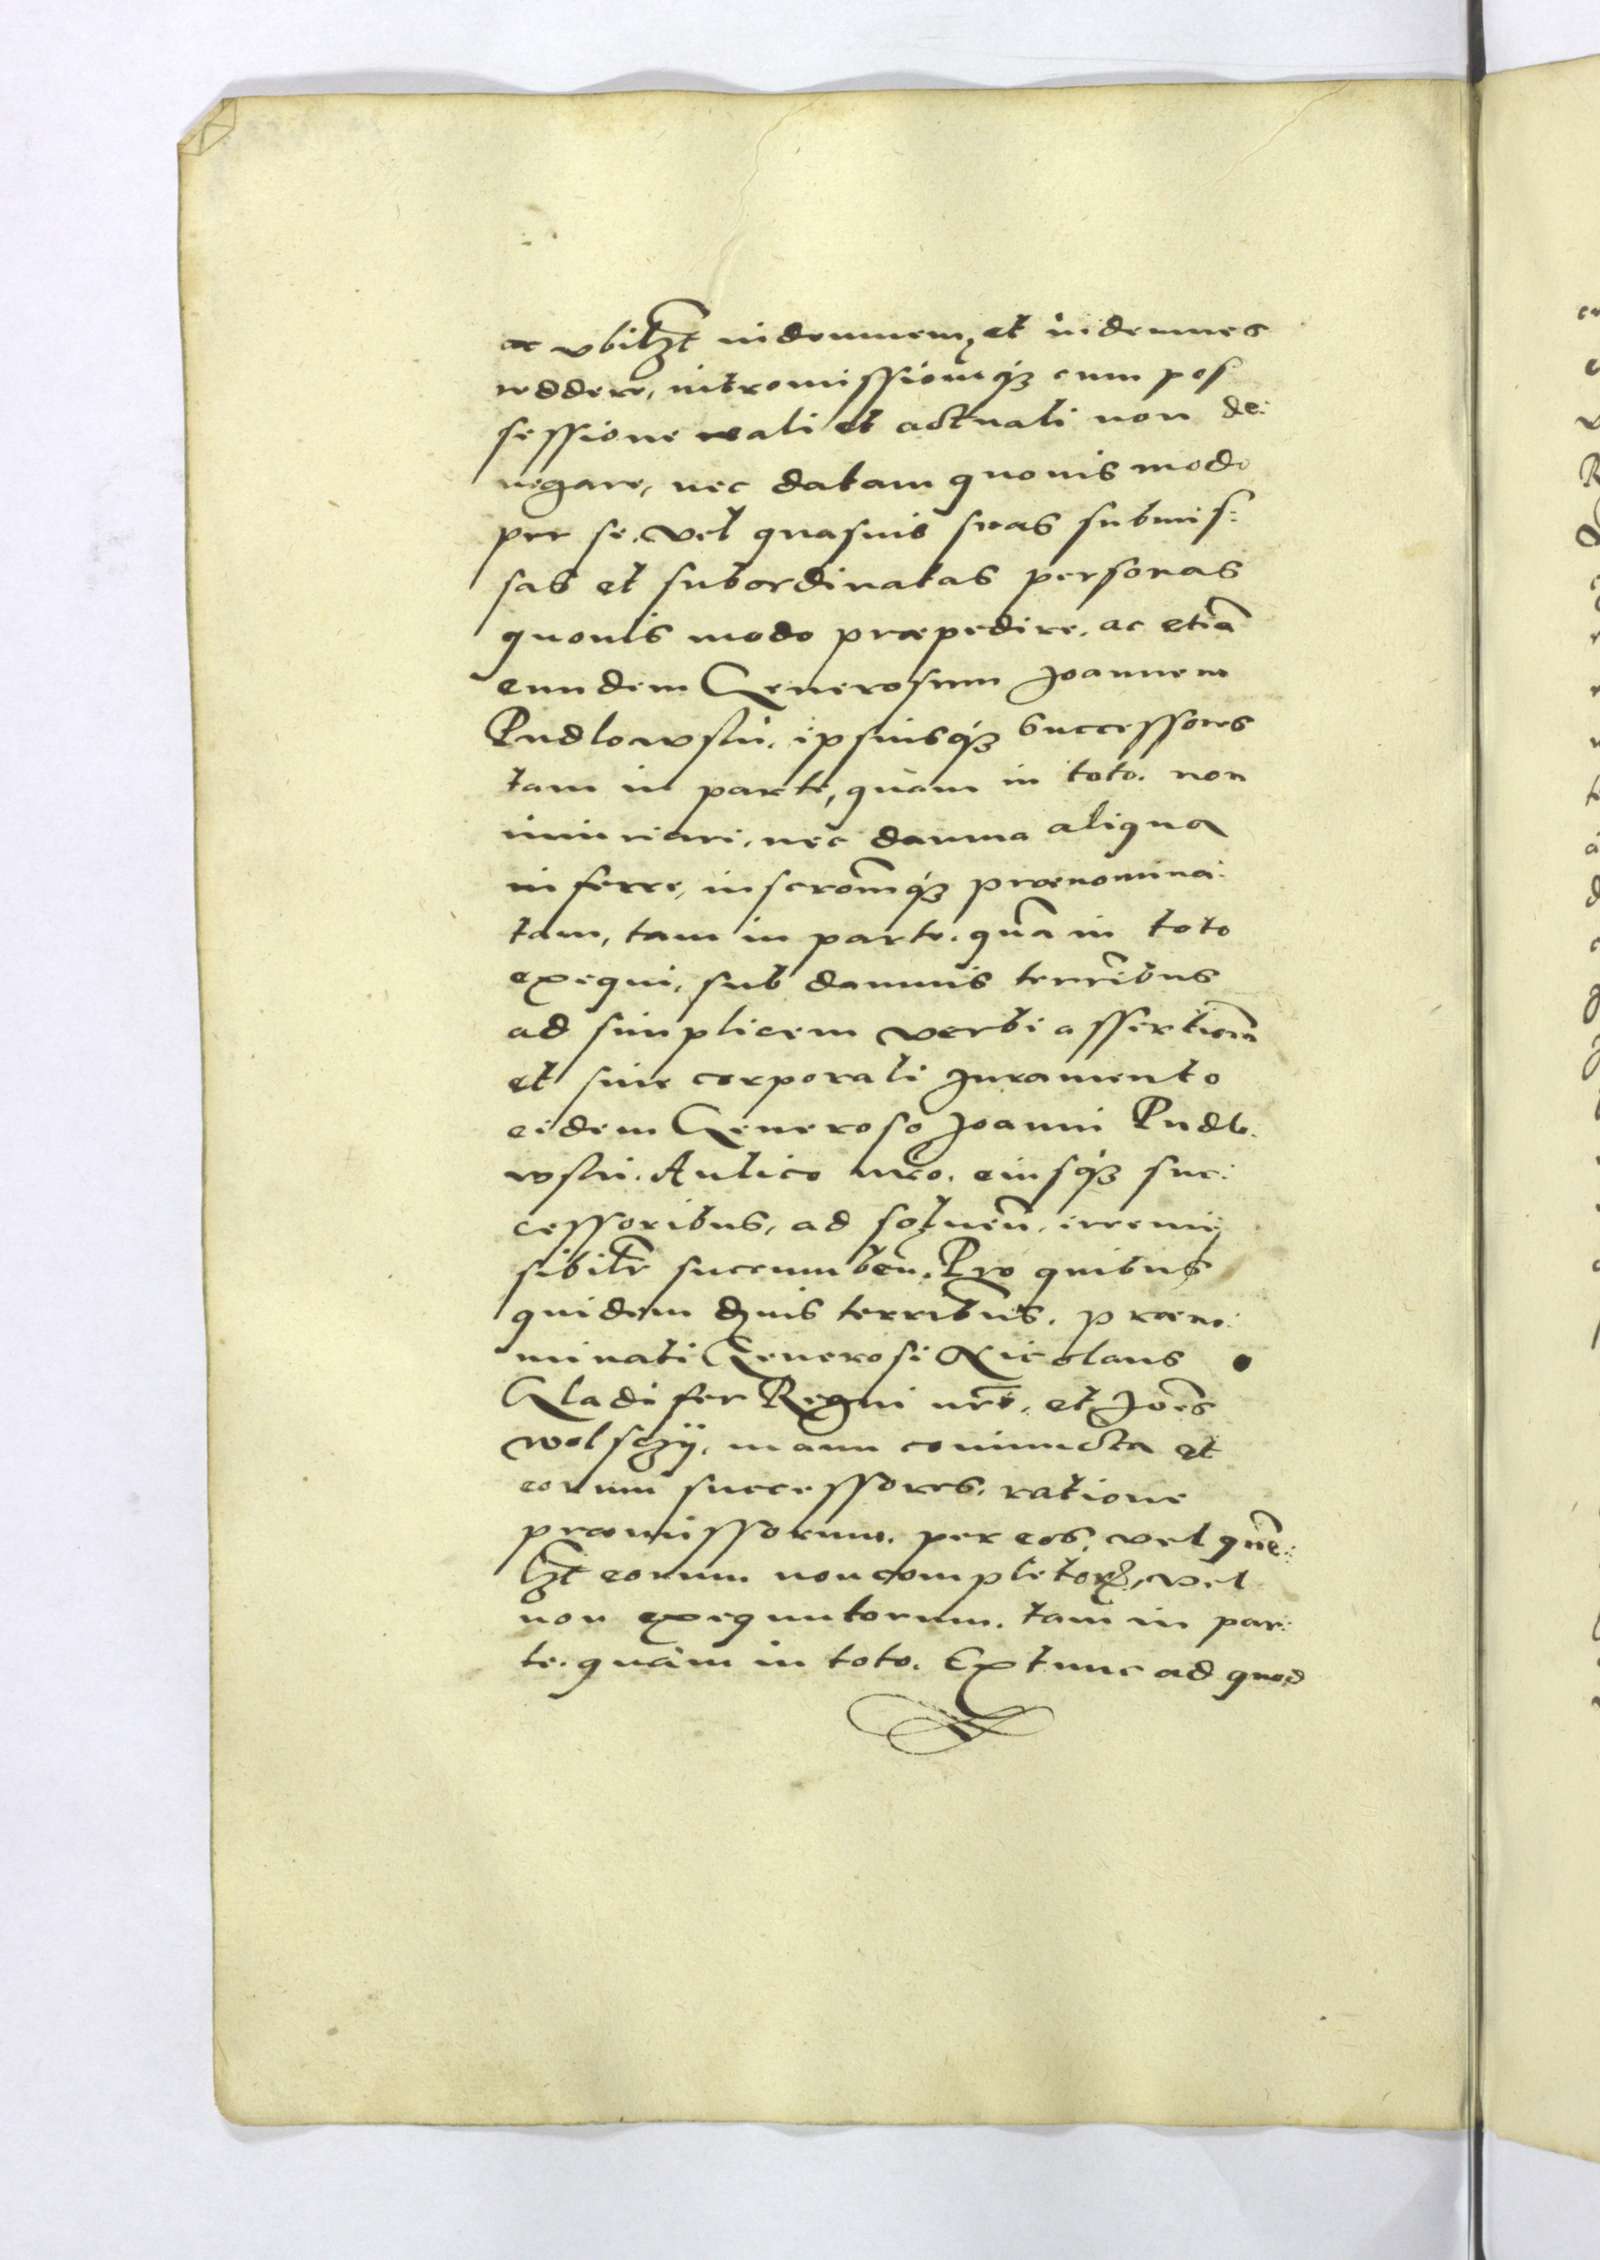 ac vbilꝫt indemnem, et indemnes
reddere, intromissionẽqꝫ cum pos
sessione reali et actuali non de:
negare, nec datam quouis modo
per se. vel quasuis suas submis:
sas et subordinatas personas
quouis modo præpedire. ac etiã
eundem Generosum Joannem
Pudlowsÿ. ipsiusqꝫ Successores
tam in parte, quàm in toto. non
iniuriari, nec damna aliqua
inferre, inscrom̃qꝫ prænomina:
tam, tam in parte. quã in toto
exequi, sub damnis terrĩbus
ad simplicem verbi assertionẽ
et sine corporali Juramento
eidem Generoso Joanni Pudlo:
wski. Aulico nr̃o. eiusqꝫ suc:
cessoribus, ad soluẽn. irremis
sibilr̃ succumbẽn. Pro quibus
quidem dñis terrĩbus. præno:
minati Generosi Nicolaus
Gladifer Regni nr̃i. et Joẽs
wolsczÿ. manu coniuncta et
eorum successores. ratione
præmissorum. per eos, vel quẽ:
lꝫt eorum non completoꝝ, vel
non exequutorum. tam in par:
te. quàm in toto. Extunc ad quod